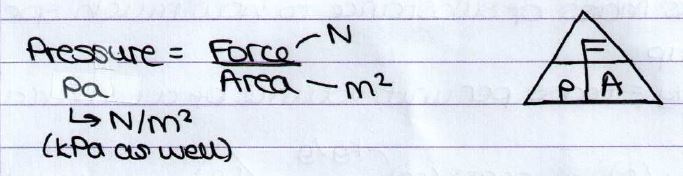 Pressure = Force - N
Area - m²
Pa
↳ N/m²
(kPa as well)
F
P A